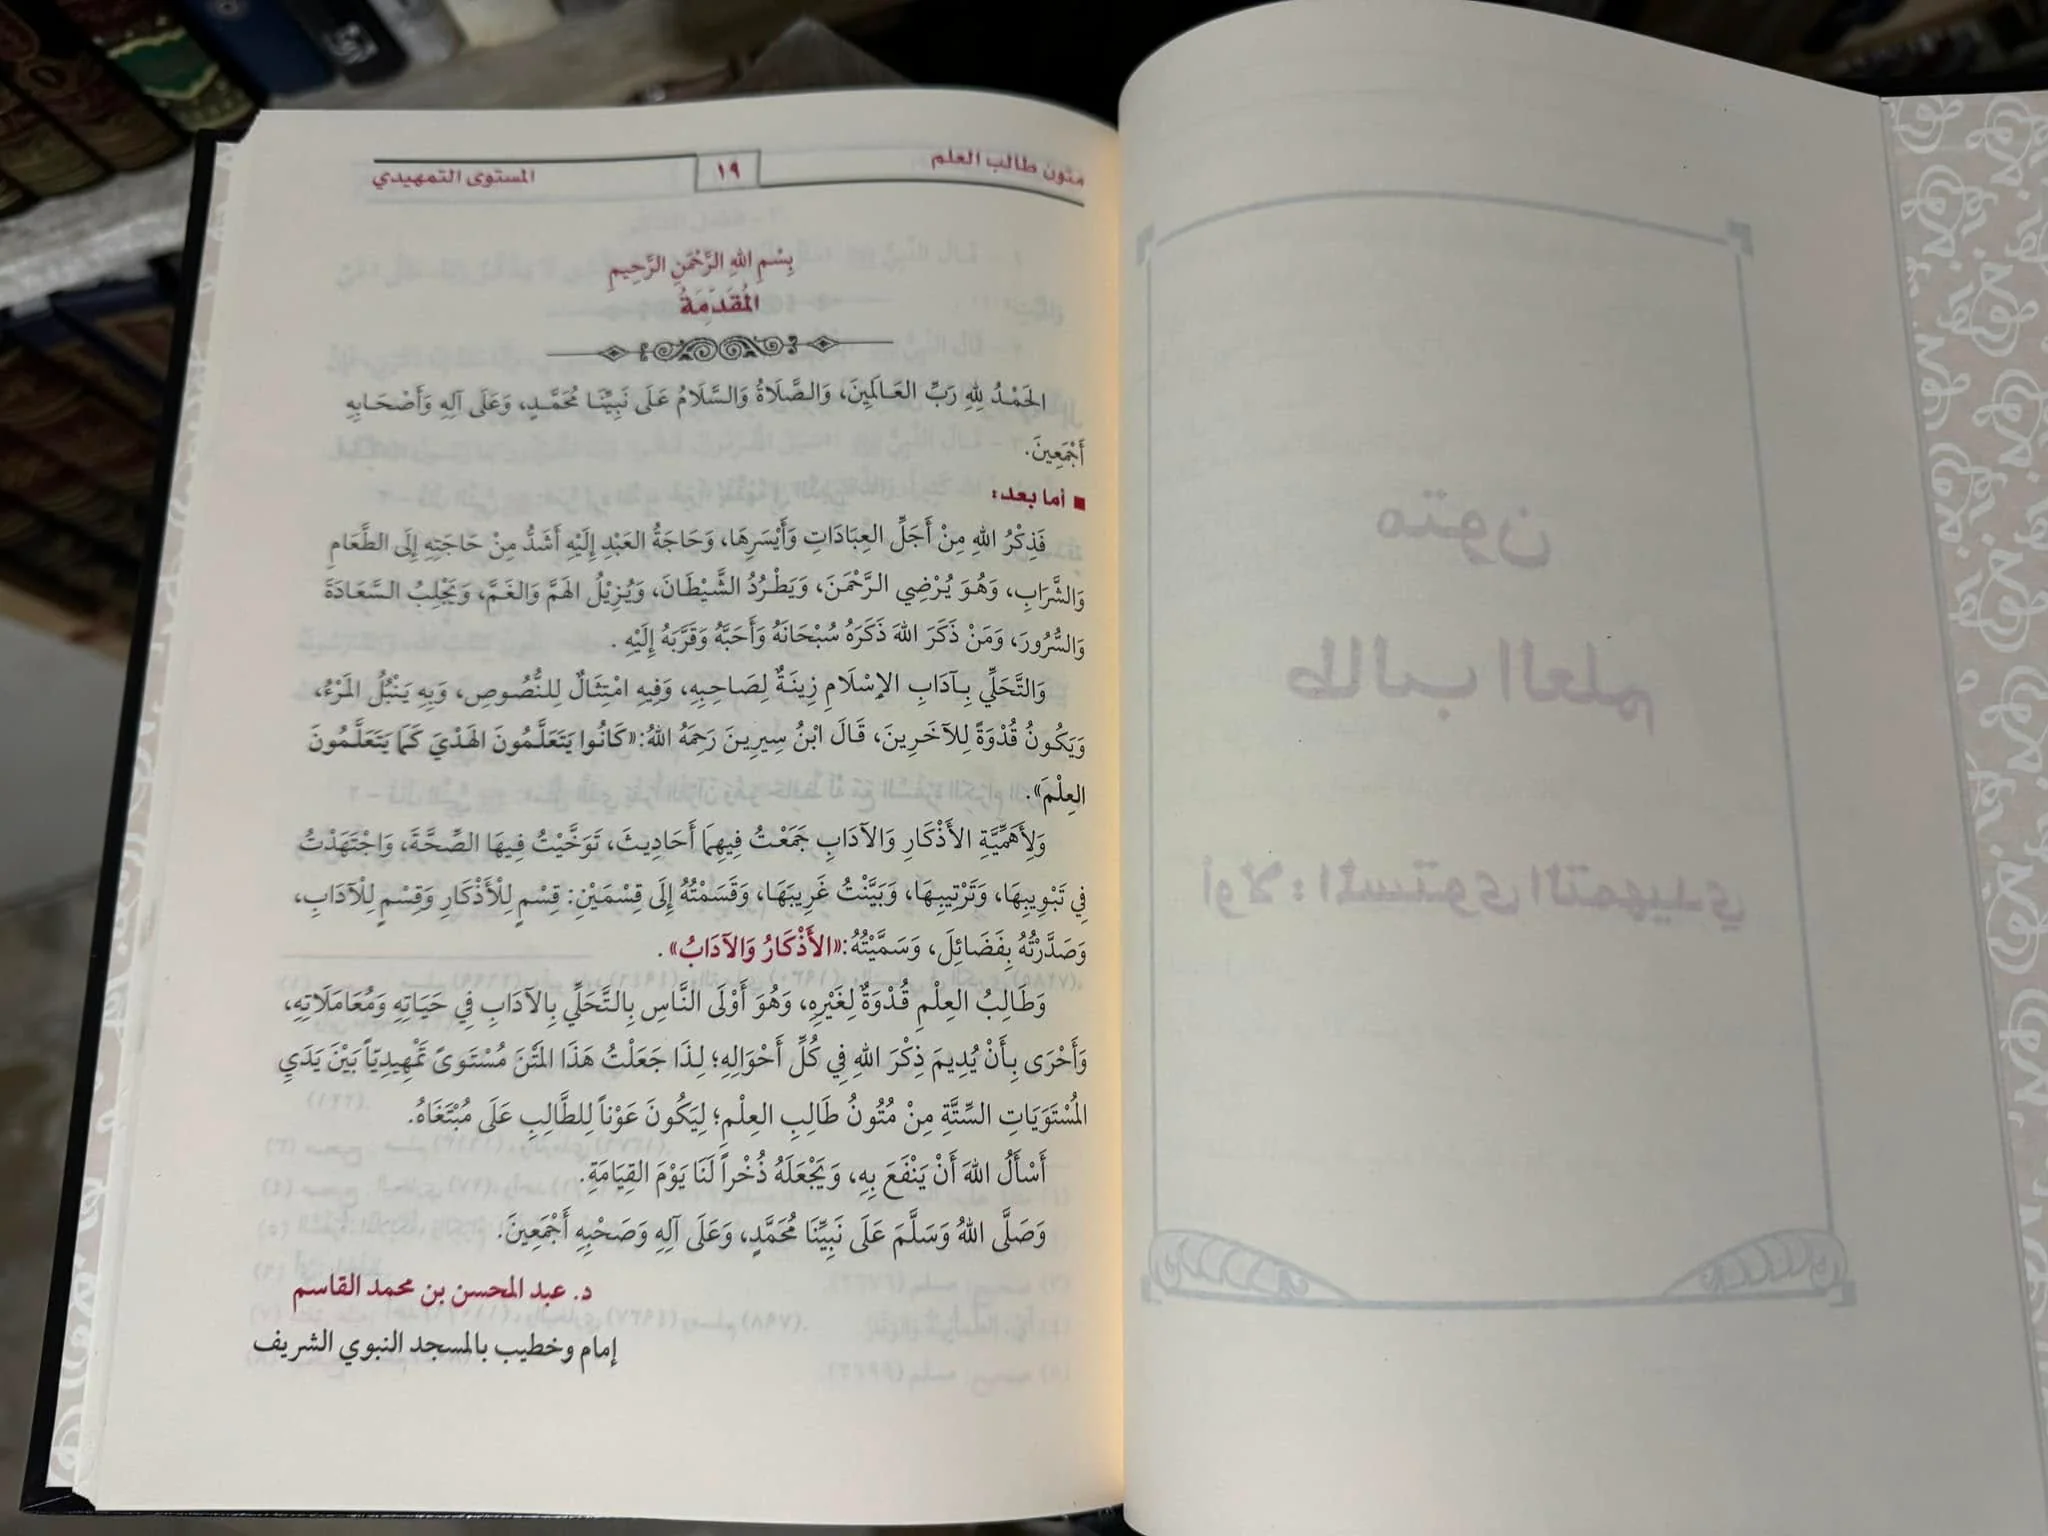 متون طالب العلم
١٩
المستوى التمهيدي
بِسْمِ اللهِ الرَّحْمَنِ الرَّحِيمِ
المُقَدِّمَةُ
الحَمْدُ لِلهِ رَبِّ العَالَمِينَ، وَالصَّلَاةُ وَالسَّلَامُ عَلَى نَبِيِّنَا مُحَمَّدٍ، وَعَلَى آلِهِ وَأَصْحَابِهِ
أَجْمَعِينَ.
■ أما بعد:
فَذِكْرُ اللهِ مِنْ أَجَلِّ العِبَادَاتِ وَأَيْسَرِهَا، وَحَاجَةُ العَبْدِ إِلَيْهِ أَشَدُّ مِنْ حَاجَتِهِ إِلَى الطَّعَامِ
وَالشَّرَابِ، وَهُوَ يُرْضِي الرَّحْمَنَ، وَيَطْرُدُ الشَّيْطَانَ، وَيُزِيْلُ الهَمَّ وَالغَمَّ، وَيَجْلِبُ السَّعَادَةَ
وَالسُّرُورَ، وَمَنْ ذَكَرَ اللهَ ذَكَرَهُ سُبْحَانَهُ وَأَحَبَّهُ وَقَرَّبَهُ إِلَيْهِ .
وَالتَّحَلِّي بِآدَابِ الإِسْلَامِ زِينَةٌ لِصَاحِبِهِ، وَفِيهِ امْتِثَالٌ لِلنُّصُوصِ، وَبِهِ يَنْبُلُ المَرْءُ،
وَيَكُونُ قُدْوَةً لِلآخَرِينَ، قَالَ ابْنُ سِيرِينَ رَحِمَهُ اللهُ: «كَانُوا يَتَعَلَّمُونَ الهَدْيَ كَمَا يَتَعَلَّمُونَ
العِلْمَ».
وَلِأَهَمِّيَّةِ الأَذْكَارِ وَالآدَابِ جَمَعْتُ فِيهِمَا أَحَادِيثَ، تَوَخَّيْتُ فِيهَا الصِّحَّةَ، وَاجْتَهَدْتُ
فِي تَبْوِيبِهَا، وَتَرْتِيبِهَا، وَبَيَّنْتُ غَرِيبَهَا، وَقَسَمْتُهُ إِلَى قِسْمَيْنِ: قِسْمٍ لِلْأَذْكَارِ وَقِسْمٍ لِلْآدَابِ،
وَصَدَّرْتُهُ بِفَضَائِلَ، وَسَمَّيْتُهُ: «الأَذْكَارُ وَالآدَابُ» .
وَطَالِبُ العِلْمِ قُدْوَةٌ لِغَيْرِهِ، وَهُوَ أَوْلَى النَّاسِ بِالتَّحَلِّي بِالآدَابِ فِي حَيَاتِهِ وَمُعَامَلَاتِهِ،
وَأَحْرَى بِأَنْ يُدِيمَ ذِكْرَ اللهِ فِي كُلِّ أَحْوَالِهِ؛ لِذَا جَعَلْتُ هَذَا المَتْنَ مُسْتَوىً تَمْهِيدِيّاً بَيْنَ يَدَيِ
المُسْتَوَيَاتِ السِّتَّةِ مِنْ مُتُونُ طَالِبِ العِلْمِ؛ لِيَكُونَ عَوْناً لِلطَّالِبِ عَلَى مُبْتَغَاهُ.
أَسْأَلُ اللهَ أَنْ يَنْفَعَ بِهِ، وَيَجْعَلَهُ ذُخْراً لَنَا يَوْمَ القِيَامَةِ.
وَصَلَّى اللهُ وَسَلَّمَ عَلَى نَبِيِّنَا مُحَمَّدٍ، وَعَلَى آلِهِ وَصَحْبِهِ أَجْمَعِينَ.
د. عبد المحسن بن محمد القاسم
إمام وخطيب بالمسجد النبوي الشريف
متون
طالب العلم
أولا: المستوى التمهيدي